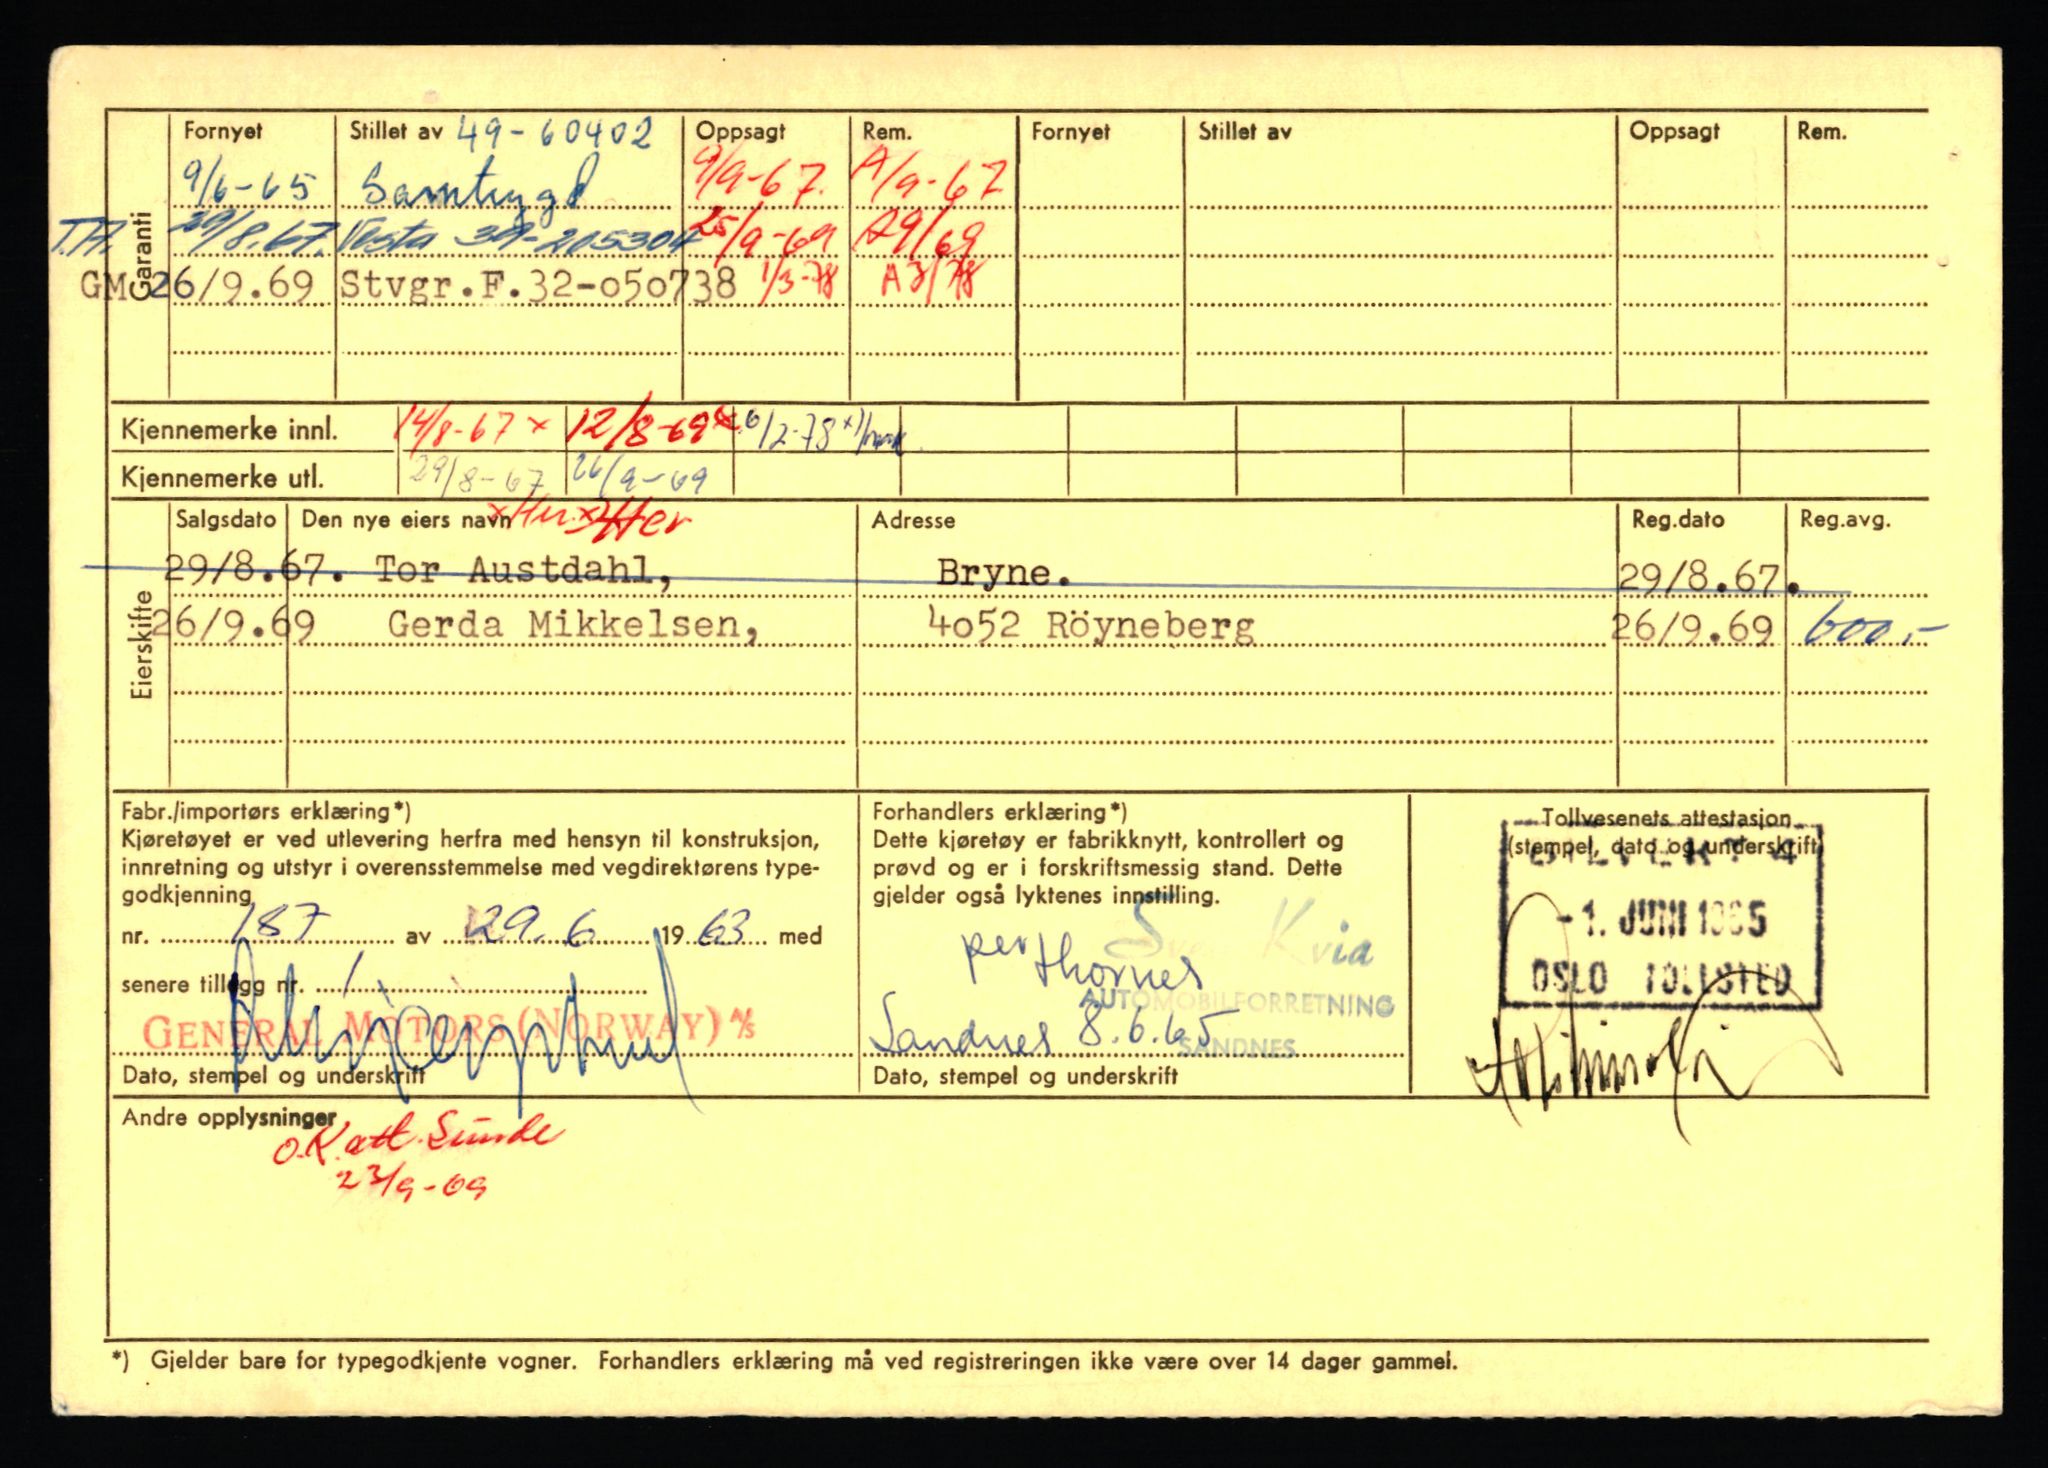 Fornyet Stillet av 49-60402 Oppsagt Rem. Fornyet Stillet av Oppsagt Rem.
9/6-65 Samtrygd 9/9-67. A/9-67
T.A. 29/8.67. Vesta 39-205304 25/9-69 A9/69
GM 26/9.69 Stvgr.F.32-050738 1/3-78 A3/78
Garanti
Kjennemerke innl. 14/8-67 x 12/8-69 6/2-78 x)
Kjennemerke utl. 29/8-67 26/9-69
Salgsdato Den nye eiers navn Adresse Reg.dato Reg.avg.
29/8.67. Tor Austdahl, Bryne. 29/8.67.
26/9.69 Gerda Mikkelsen, 4052 Röyneberg 26/9.69 600,-
Eierskifte
Fabr./importørs erklæring*)
Kjøretøyet er ved utlevering herfra med hensyn til konstruksjon,
innretning og utstyr i overensstemmelse med vegdirektørens type-
godkjenning
nr. 187 av 29.6 1963 med
senere tillegg nr. /
GENERAL MOTORS (NORWAY) A/S
Dato, stempel og underskrift
Forhandlers erklæring*)
Dette kjøretøy er fabrikknytt, kontrollert og
prøvd og er i forskriftsmessig stand. Dette
gjelder også lyktenes innstilling.
Kvia
per Thornes
AUTOMOBILFORRETNING
Sandnes 8.6.65
SANDNES
Dato, stempel og underskrift
Tollvesenets attestasjon
(stempel, dato og underskrift)
-1. JUNI 1965
OSLO TOLLSTED
Andre opplysninger
O.K. att. Sunde
23/9-69
*) Gjelder bare for typegodkjente vogner. Forhandlers erklæring må ved registreringen ikke være over 14 dager gammel.